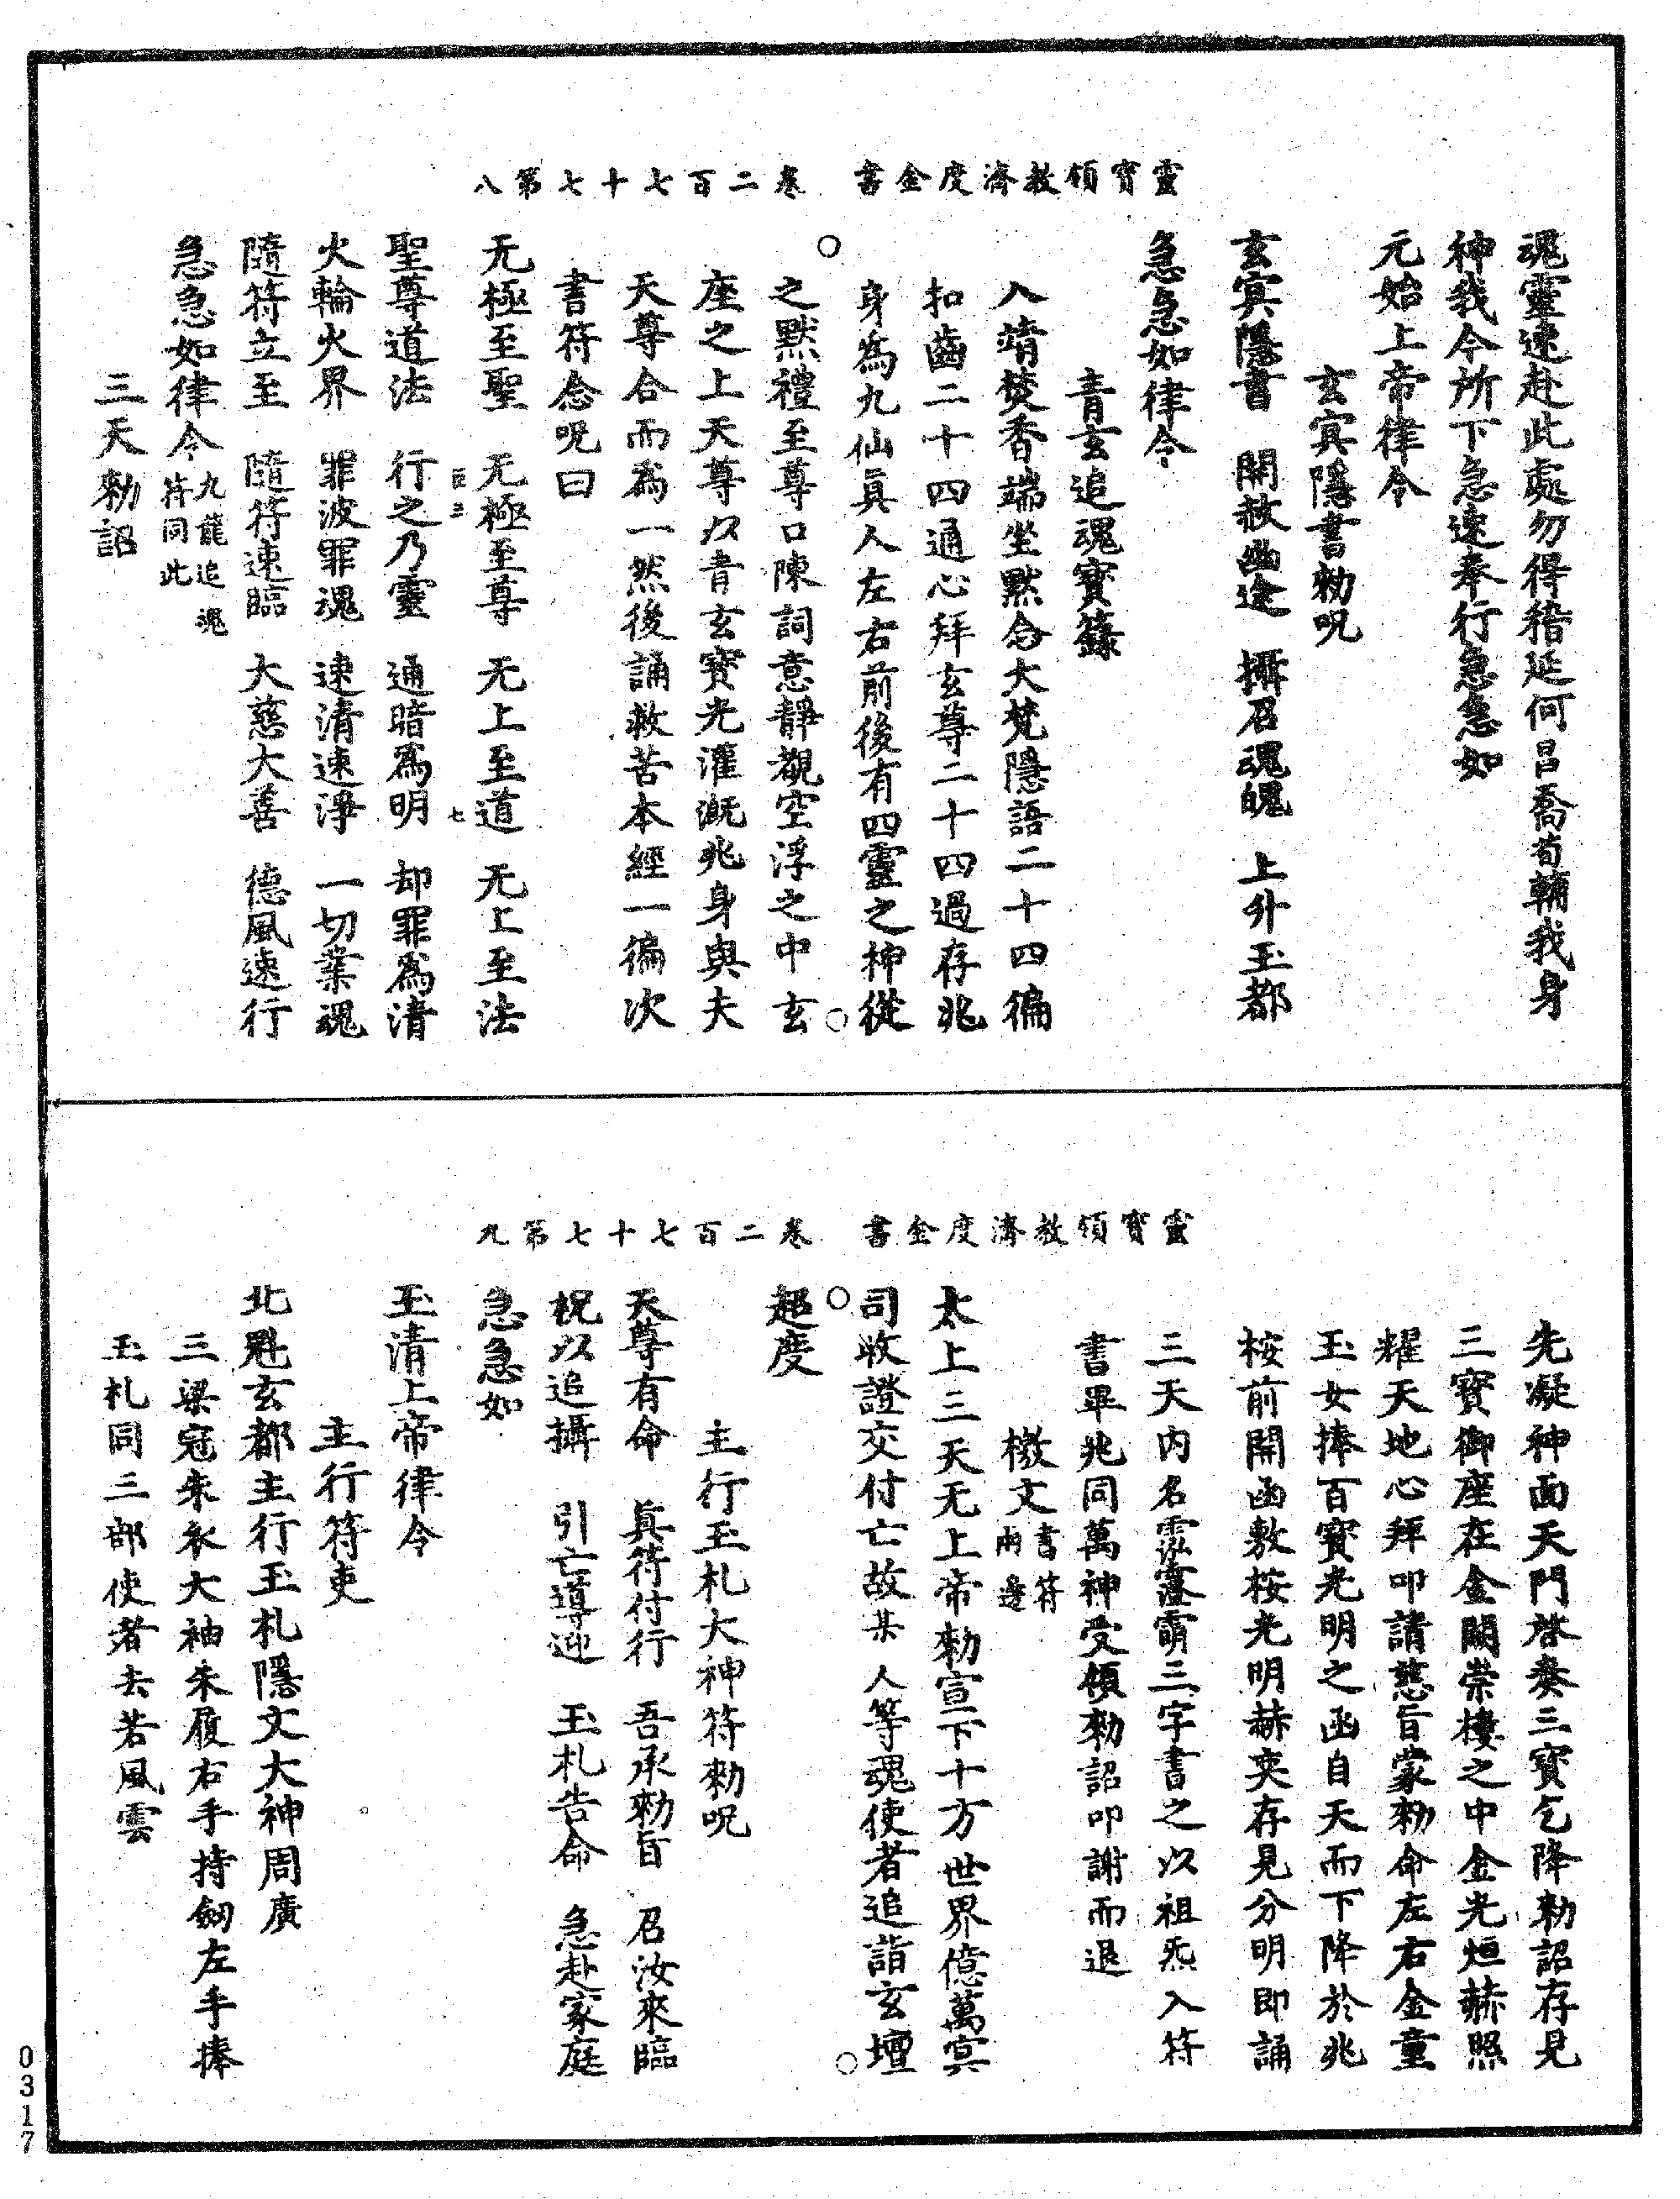 靈寶領教濟度金書　卷二百七十七第八
魂靈速赴此處勿得稽延何昌喬荀輔我身
神我今所下急速奉行急急如
元始上帝律令
玄冥隱書勑呪
玄冥隱書　開赦幽途　攝召魂魄　上升玉都
急急如律令
青玄追魂寶籙
入靖焚香端坐默念大梵隱語二十四徧
扣齒二十四通心拜玄尊二十四過存兆
身為九仙真人左右前後有四靈之神從
之默禮至尊口陳詞意靜覩空浮之中玄
座之上天尊以青玄寶光灌溉兆身與夫
天尊合而為一然後誦救苦本經一徧次
書符念呪曰
无極至聖　无極至尊　无上至道　无上至法
三　七
聖尊道法　行之乃靈　通暗為明　却罪為清
火輪火界　罪波罪魂　速清速淨　一切業魂
隨符立至　隨符速臨　大慈大善　德風速行
急急如律令九龍追魂符同此
三天勑詔
靈寶領教濟度金書　卷二百七十七第九
先凝神面天門啓奏三寶乞降勑詔存見
三寶御座在金闕崇樓之中金光烜赫照
耀天地心拜叩請慈旨蒙勑命左右金童
玉女捧百寶光明之函自天而下降於兆
桉前開函敷桉光明赫奕存見分明即誦
三天內名三字書之以祖炁入符
書畢兆同萬神受領勑詔叩謝而退
檄文書符兩邊
太上三天无上帝勑宣下十方世界億萬冥
司收證交付亡故某　人等魂使者追詣玄壇
超度
主行玉札大神符勑呪
天尊有命　真符付行　吾承勑旨　召汝來臨
祝以追攝　引亡導迎　玉札告命　急赴家庭
急急如
玉清上帝律令
主行符吏
北魁玄都主行玉札隱文大神周廣
三梁冠朱衣大袖朱履右手持劒左手捧
玉札同三部使者去若風雲
0317